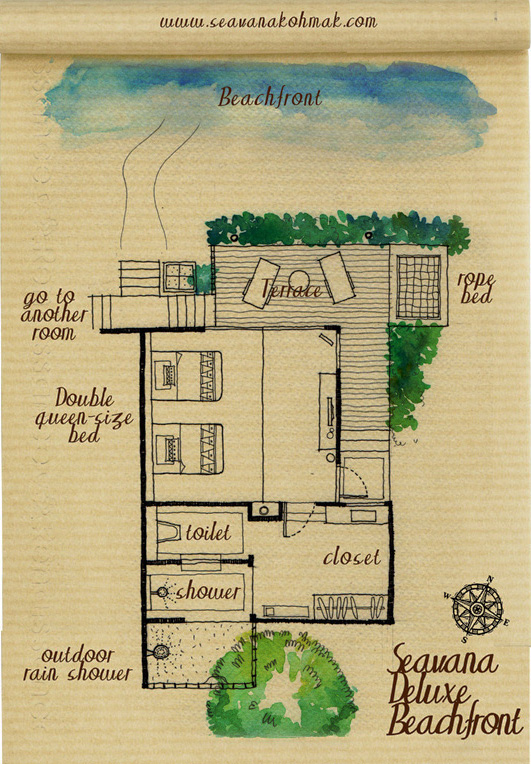 www.seavanakohmak.com
Beachfront
Terrace
rope
bed
go to
another
room
Double
queen-size
bed
toilet
closet
shower
outdoor
rain shower
N
W
E
S
Seavana
Deluxe
Beachfront